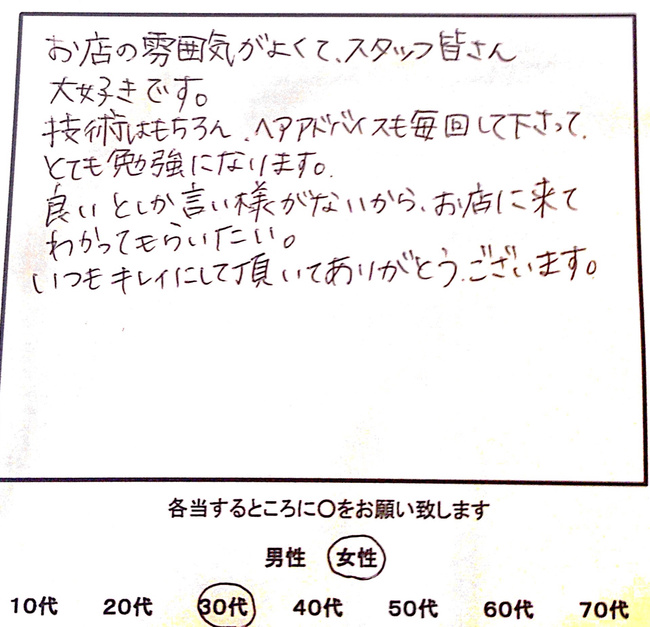 お店の雰囲気がよくて、スタッフ皆さん
大好きです。
技術はもちろん、ヘアアドバイスも毎回して下さって、
とても勉強になります。
良いとしか言い様がないから、お店に来て
わかってもらいたい。
いつもキレイにして頂いてありがとうございます。
各当するところに〇をお願い致します
男性 女性
10代 20代 30代 40代 50代 60代 70代